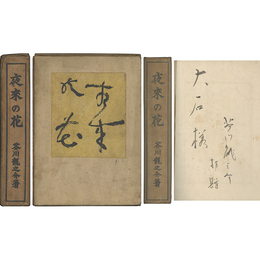 夜来の花
芥川龍之介著
夜来
の花
夜来の花
芥川龍之介著
大石様
芥川龍之介